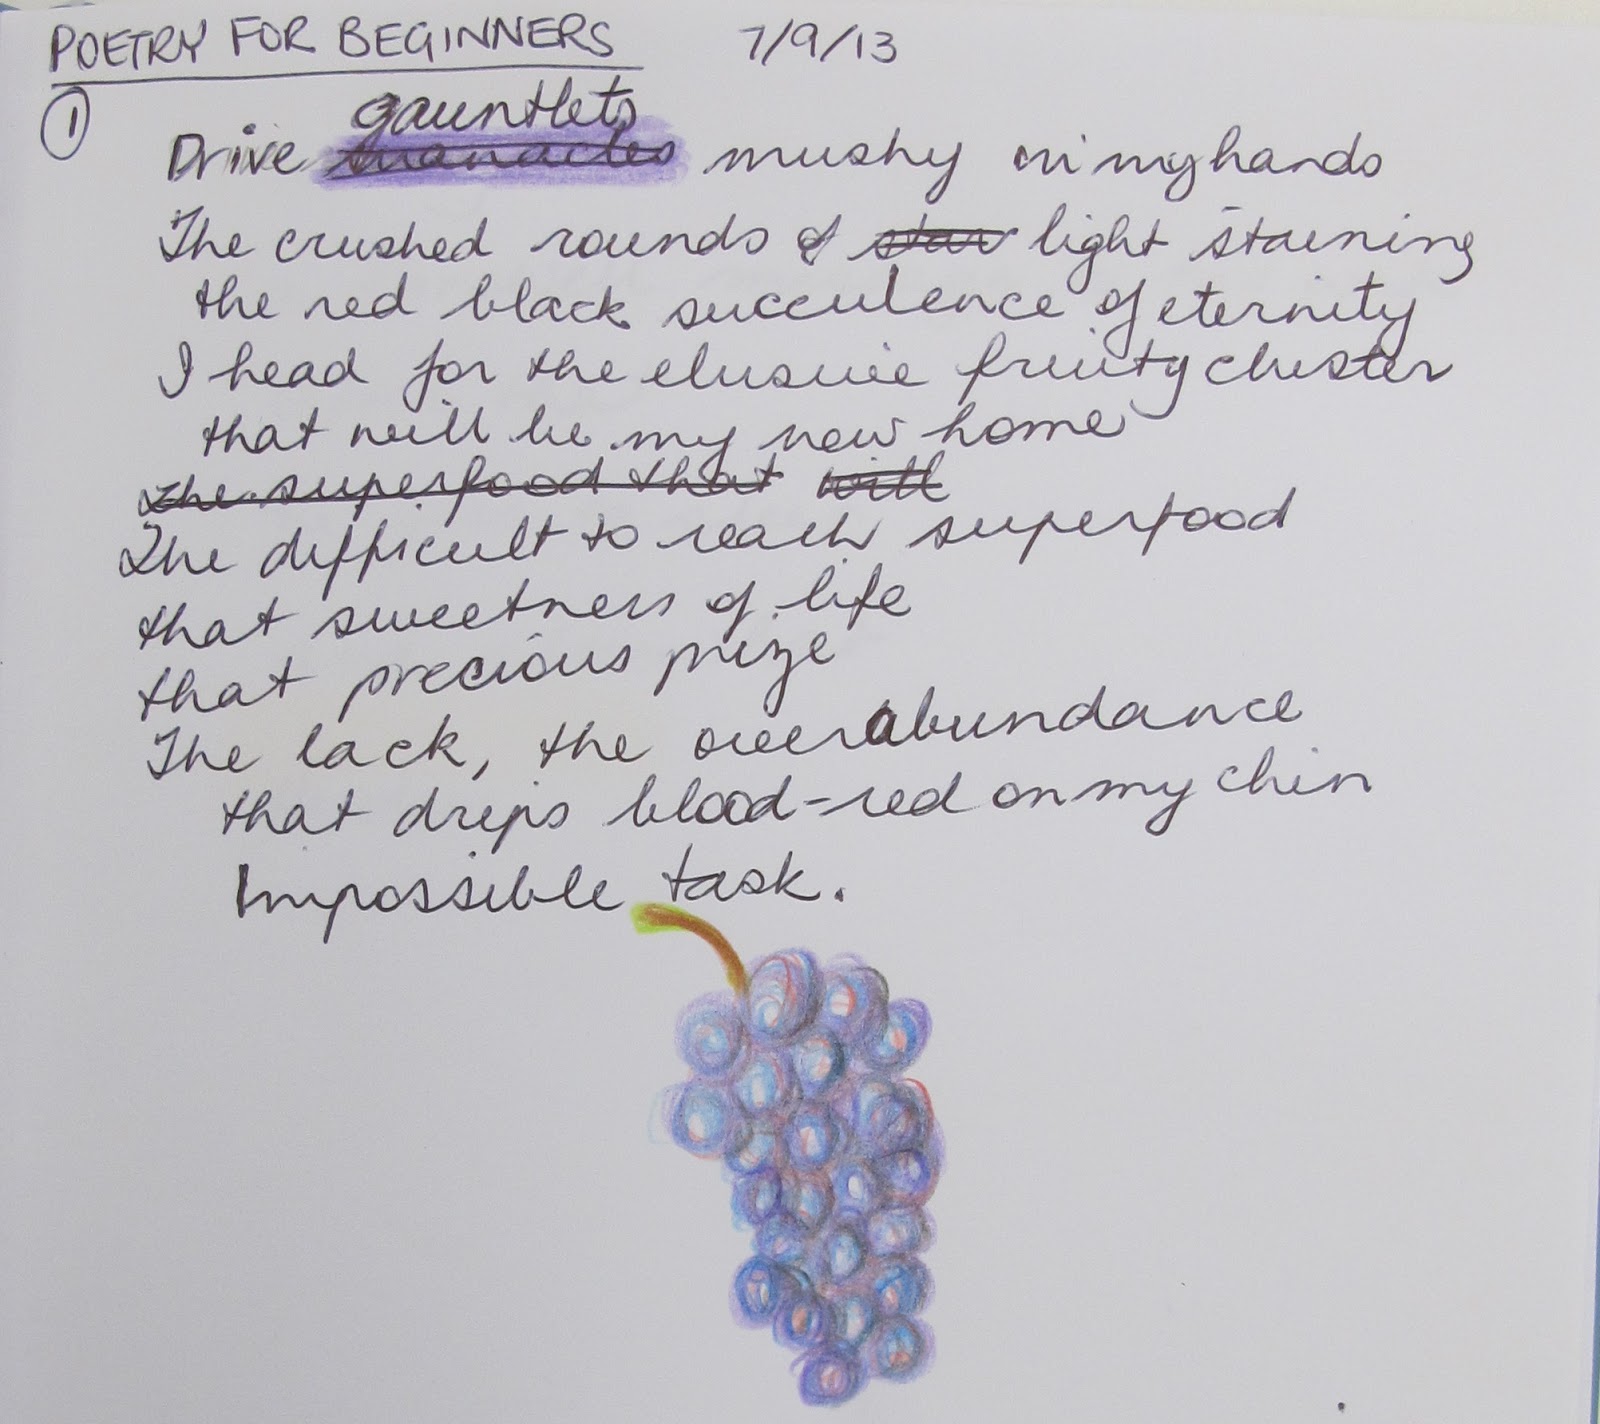 POETRY FOR BEGINNERS 7/9/13
①
gauntlets
Drive manacles mushy in my hands
The crushed rounds of star light staining
the red black succulence of eternity
I head for the elusive fruity cluster
that will be my new home
the superfood that will
The difficult to reach superfood
that sweetness of life
that precious prize
The lack, the overabundance
that drips blood-red on my chin
Impossible task.